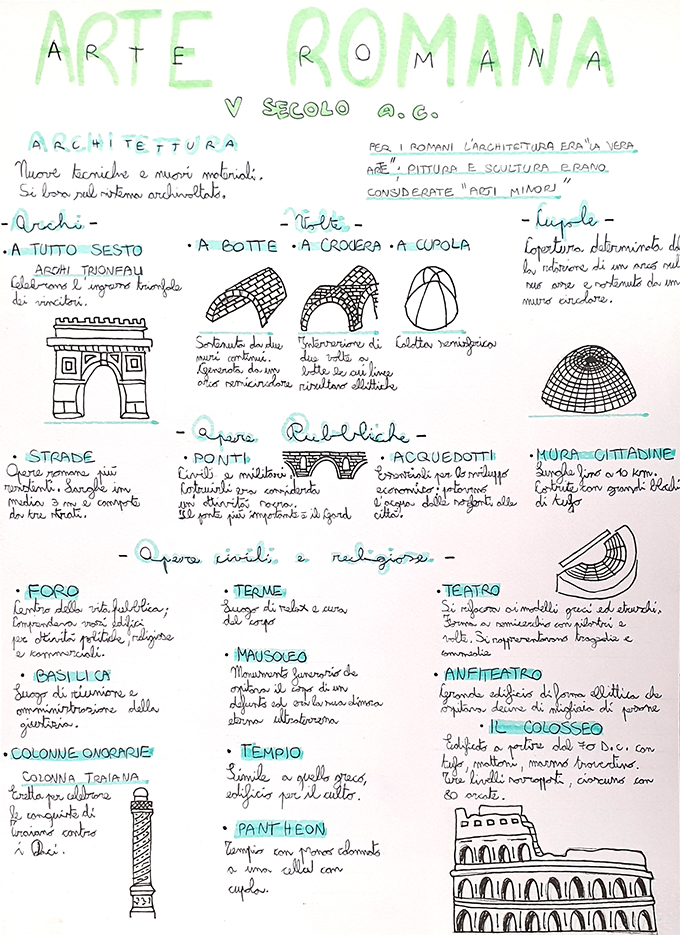 ARTE ROMANA
V SECOLO A.C.
ARCHITETTURA
Nuove tecniche e nuovi materiali.
Si basa sul sistema archivoltato.
PER I ROMANI L'ARCHITETTURA ERA "LA VERA
ARTE"; PITTURA E SCULTURA ERANO
CONSIDERATE "ARTI MINORI"
- Archi -
• A TUTTO SESTO
ARCHI TRIONFALI
Celebrano l ingresso trionfale
dei vincitori.
- Volte -
• A BOTTE
Sostenuta da due
muri continui.
Generata da un
arco semicircolare
• A CROCIERA
Intersezione di
due volte a
botte le cui linee
risultano ellittiche
• A CUPOLA
Calotta semisferica
- Cupole -
Copertura determinata da
la rotazione di un arco sul
suo asse e sostenuto da un
muro circolare.
- Opere Pubbliche -
• STRADE
Opere romane più
resistenti. Larghe in
media 3 m e composte
da tre strati.
• PONTI
Civili e militari.
Costruirli era considerata
un attività sacra.
Il ponte più importante è il Gard
• ACQUEDOTTI
Essenziali per lo sviluppo
economico: portavano
l'acqua dalle sorgenti alle
città.
• MURA CITTADINE
Lunghe fino a 10 km.
Costruite con grandi blocchi
di tufo
- Opere civili e religiose -
• FORO
Centro della vita pubblica;
Comprendeva vari edifici
per attività politiche, religiose
e commerciali.
• BASILICA
Luogo di riunione e
amministrazione della
giustizia.
• COLONNE ONORARIE
COLONNA TRAIANA
Eretta per celebrare
le conquiste di
Traiano contro
i Daci.
• TERME
Luogo di relax e cura
del corpo
• MAUSOLEO
Monumento funerario che
ospitava il corpo di un
defunto ed era la sua dimora
eterna ultraterrena
• TEMPIO
Simile a quello greco,
edificio per il culto.
• PANTHEON
Tempio con pronao colonnato
a una cella con
cupola.
• TEATRO
Si rifaceva ai modelli greci ed etruschi.
Forma a semicerchio con pilastri e
volte. Si rappresentavano tragedie e
commedie
• ANFITEATRO
Grande edificio di forma ellittica che
ospitava decine di migliaia di persone
• IL COLOSSEO
Edificato a partire dal 70 D.C. con
tufo, mattoni, marmo travertino.
Tre livelli sovrapposti, ciascuno con
80 arcate.